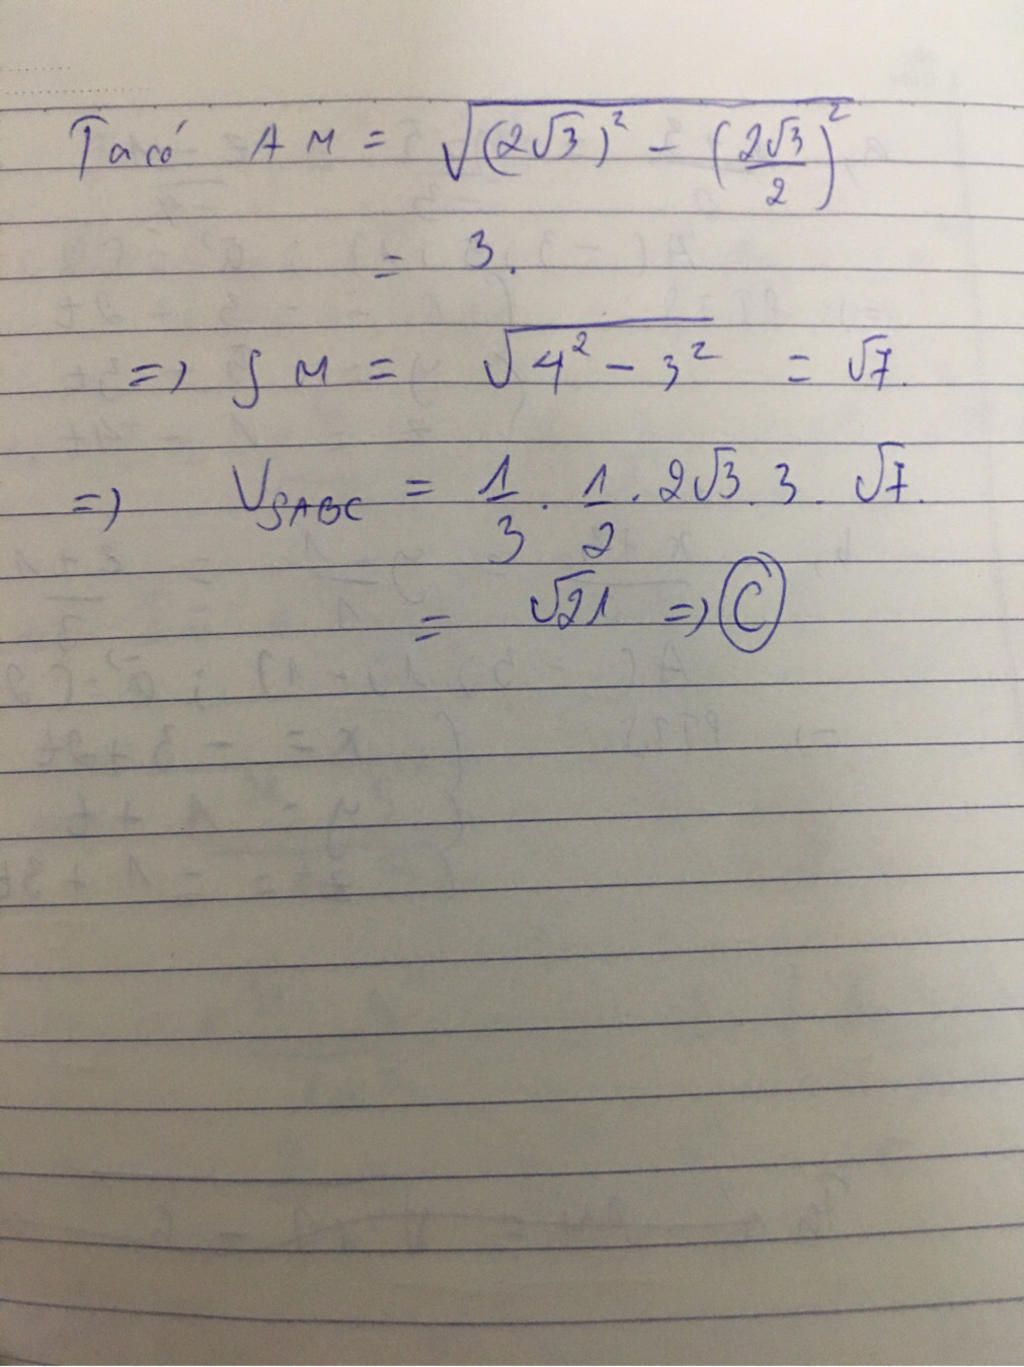 Ta có AM = √((2√3)² - (2√3/2)²)
= 3.
=> SM = √(4² - 3²) = √7.
=> V_SABC = 1/3 . 1/2 . 2√3 . 3 . √7.
= √21 => C